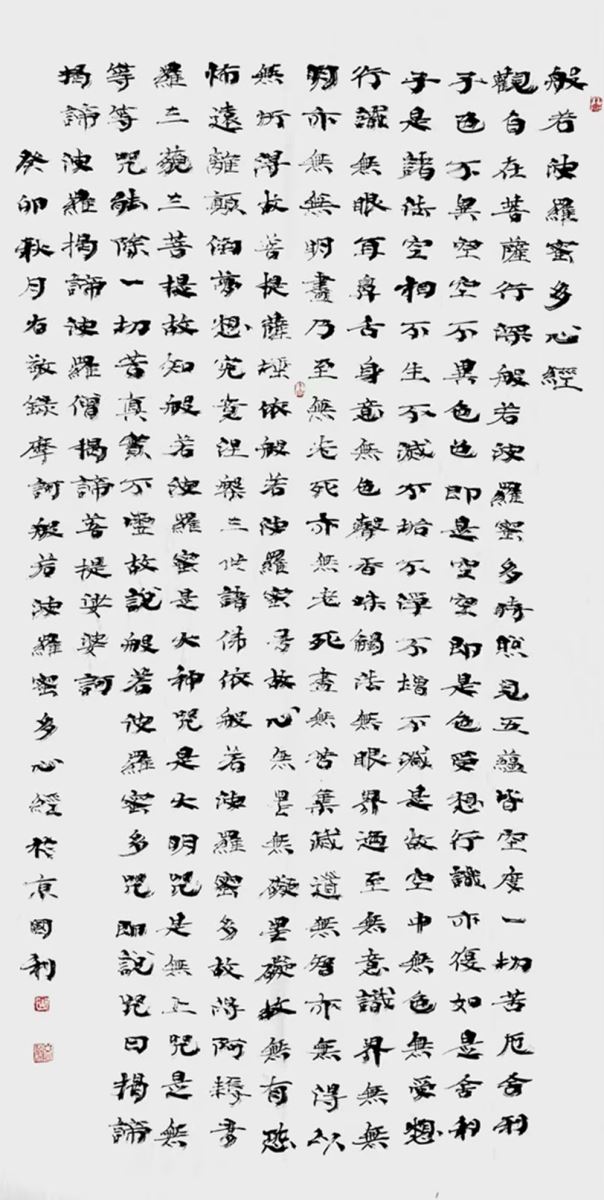 般若波羅蜜多心經
觀自在菩薩行深般若波羅蜜多時照見五蘊皆空度一切苦厄舍利
子色不異空空不異色色即是空空即是色受想行識亦復如是舍利
子是諸法空相不生不滅不垢不淨不增不減是故空中無色無受想
行識無眼耳鼻舌身意無色聲香味觸法無眼界迺至無意識界無無
明亦無無明盡乃至無老死亦無老死盡無苦集滅道無智亦無得以
無所得故菩提薩埵依般若波羅蜜多故心無罣無礙罣礙故無有恐
怖遠離顛倒夢想究竟涅槃三世諸佛依般若波羅蜜多故得阿耨多
羅三藐三菩提故知般若波羅蜜是大神咒是大明咒是無上咒是無
等等咒能除一切苦真實不虛故說般若波羅蜜多咒即說咒曰揭諦
揭諦波羅揭諦波羅僧揭諦菩提娑婆訶
癸卯秋月右敬錄摩訶般若波羅蜜多心經於京國利